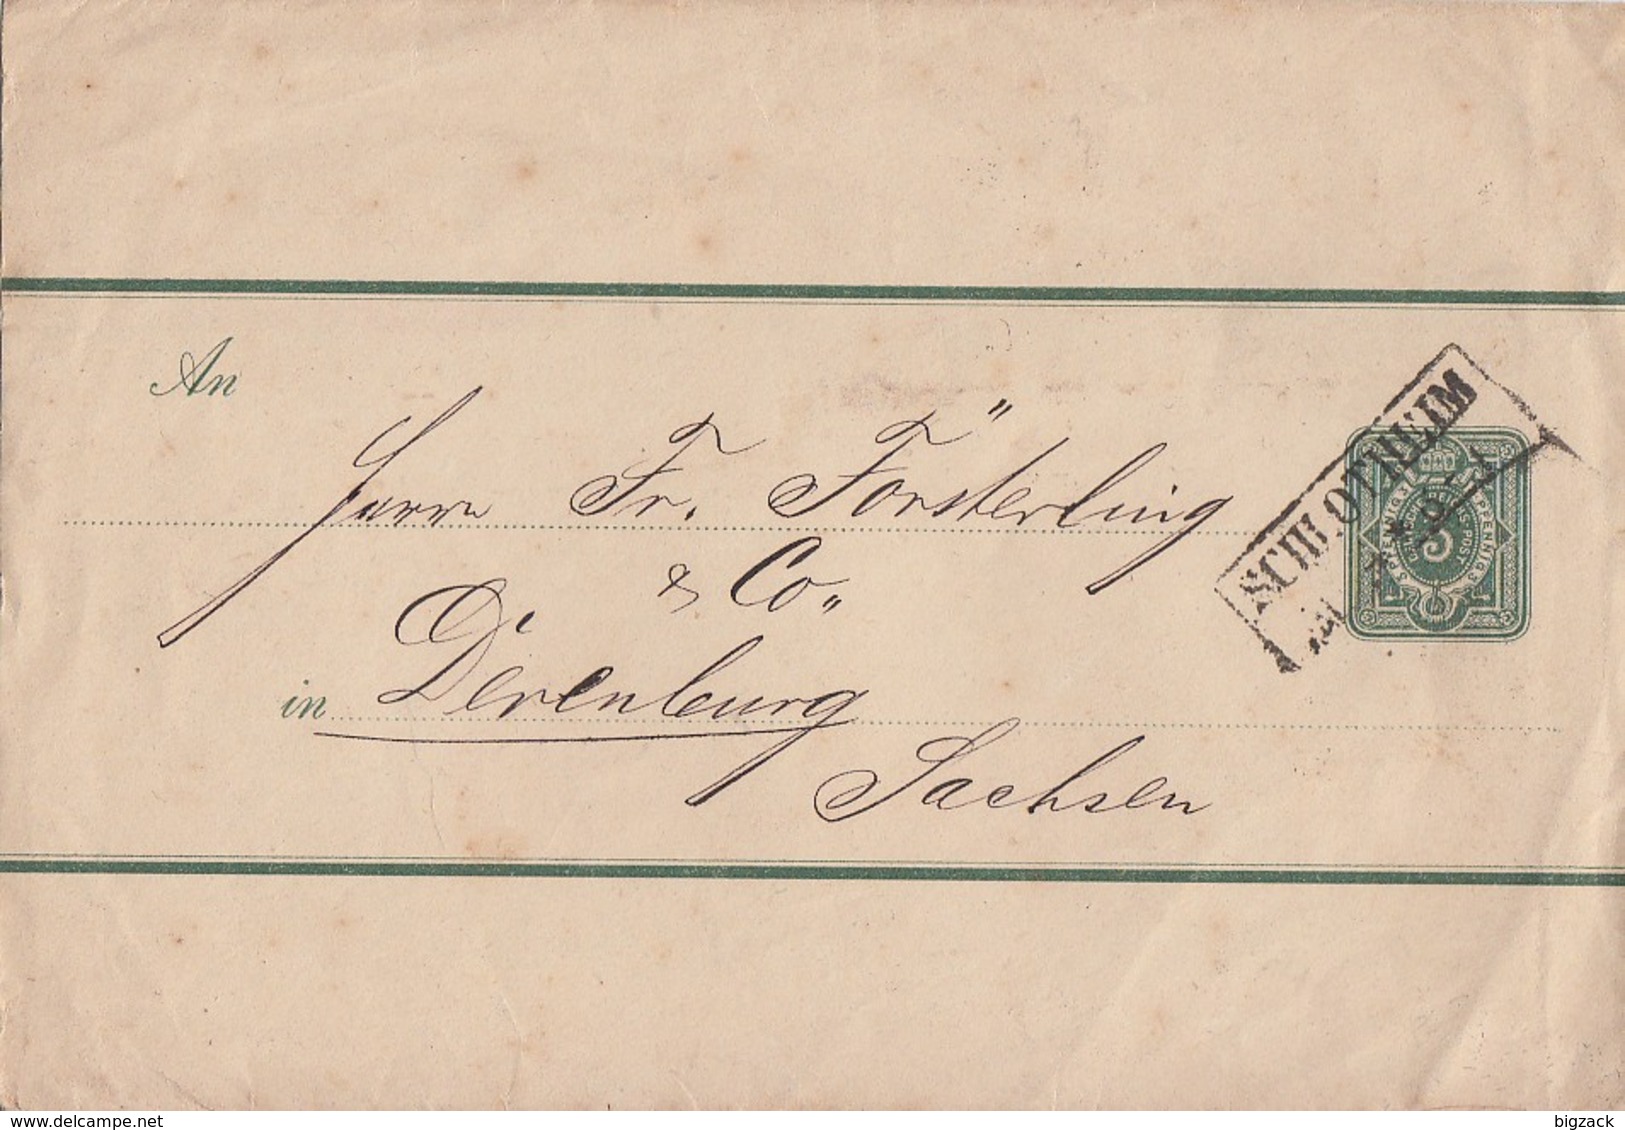 An
Herrn Fr. Försterling
& Co„
in Derenburg
Sachsen
SCHLOTHEIM
3 PFENNIG 3 PFENNIG 3
3
delcampe.net
bigzack